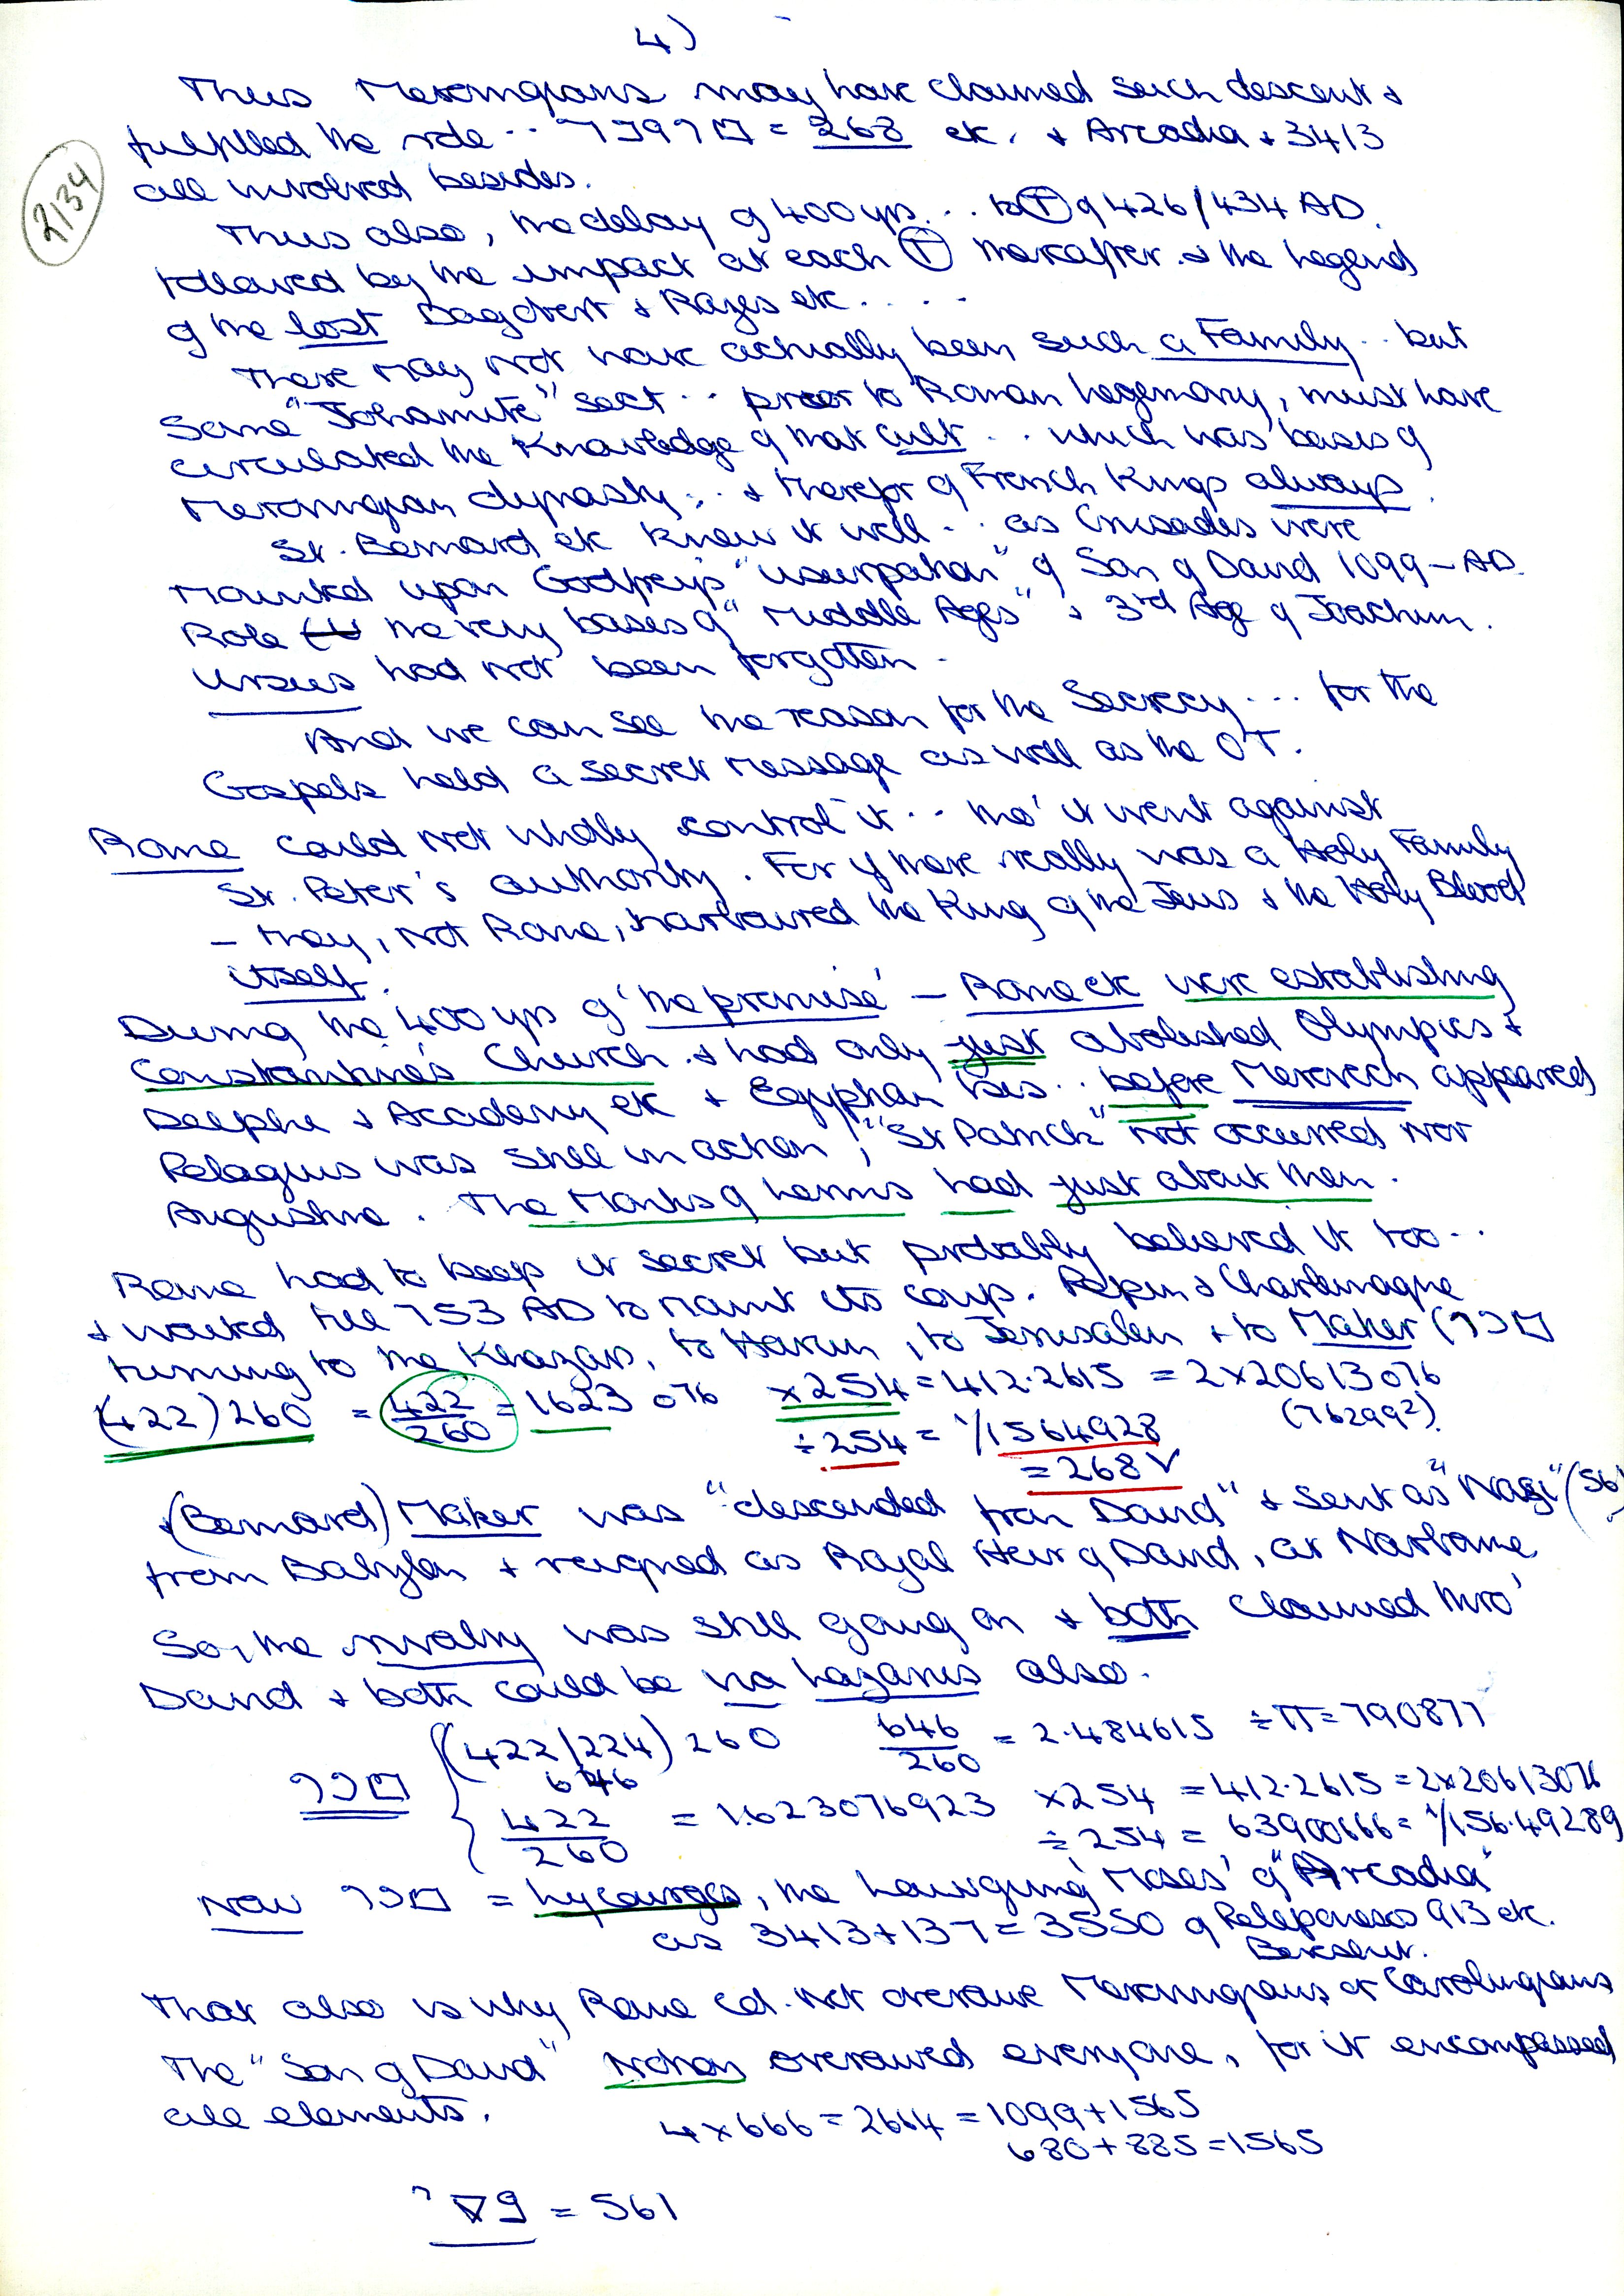 4)
Thus Merovingians may have claimed such descent &
fulfilled the role .. = 268 etc. & Arcadia + 3413
all involved besides.
2134
Thus also, the delay of 400 yrs ... to (T) of 426/434 AD.
followed by the impact at each (T) thereafter. & the legend
of the lost Dagobert & Razes etc ....
There may not have actually been such a Family .. but
Some "Johannite" sect .. prior to Roman hegemony, must have
circulated the knowledge of that cult .. which was basis of
Merovingian dynasty .. & therefor of French Kings always.
St. Bernard etc knew it well .. as Crusades were
Mounted upon Godfrey's "usurpation" of Son of David 1099 – AD.
Role the very basis of "Middle Ages" & 3rd Age of Joachim.
Ursus had not been forgotten.
And we can see the reason for the Secrecy ... for the
Gospels held a secret message as well as the OT.
Rome could not wholly control it .. tho' it went against
St. Peter's authority. For if there really was a Holy Family
– they, not Rome, harboured the King of the Jews & the Holy Blood
itself.
During the 400 yrs of 'the promise' – Rome etc were establishing
Constantine's Church. & had only just abolished Olympics &
Delphi & Academy etc + Egyptian Isis .. before Merovech appeared
Pelagius was still in action, "St Patrick" not occurred nor
Augustine. The Monks of Lerins had just about then.
Rome had to keep it secret but probably believed it too ..
& waited till 753 AD to mount its coup. Pepin & Charlemagne
turning to the Khazars, to Harun, to Jerusalem & to Maker (
(422) 260 = 422/260 = 1623 076 x 254 = 412.2615 = 2 x 20613076
÷ 254 = 1/1564928 (76299²)
= 268 V
& (Bernard) Maker was "descended from David" & sent as "Nasi" (56)
from Babylon & reigned as Royal Heir of David, at Narbonne
So, the rivalry was still going on & both claimed thro'
David & both could be via Lazarus also.
(422/224) 260 646/260 = 2.484615 ÷ π = 790877
646
422/260 = 1.623076923 x 254 = 412.2615 = 2 x 20613076
÷ 254 = 63900666 = 1/156.49289
Now = Lycourgos, the Lawgiving 'Moses' of "Arcadia"
as 3413 + 137 = 3550 of Peloponesos 913 etc.
That also is why Rome cd. not overawe Merovingians or Carolingians
The "Son of David" notion overawed everyone, for it encompassed
all elements.
4 x 666 = 2664 = 1099 + 1565
680 + 885 = 1565
= 561